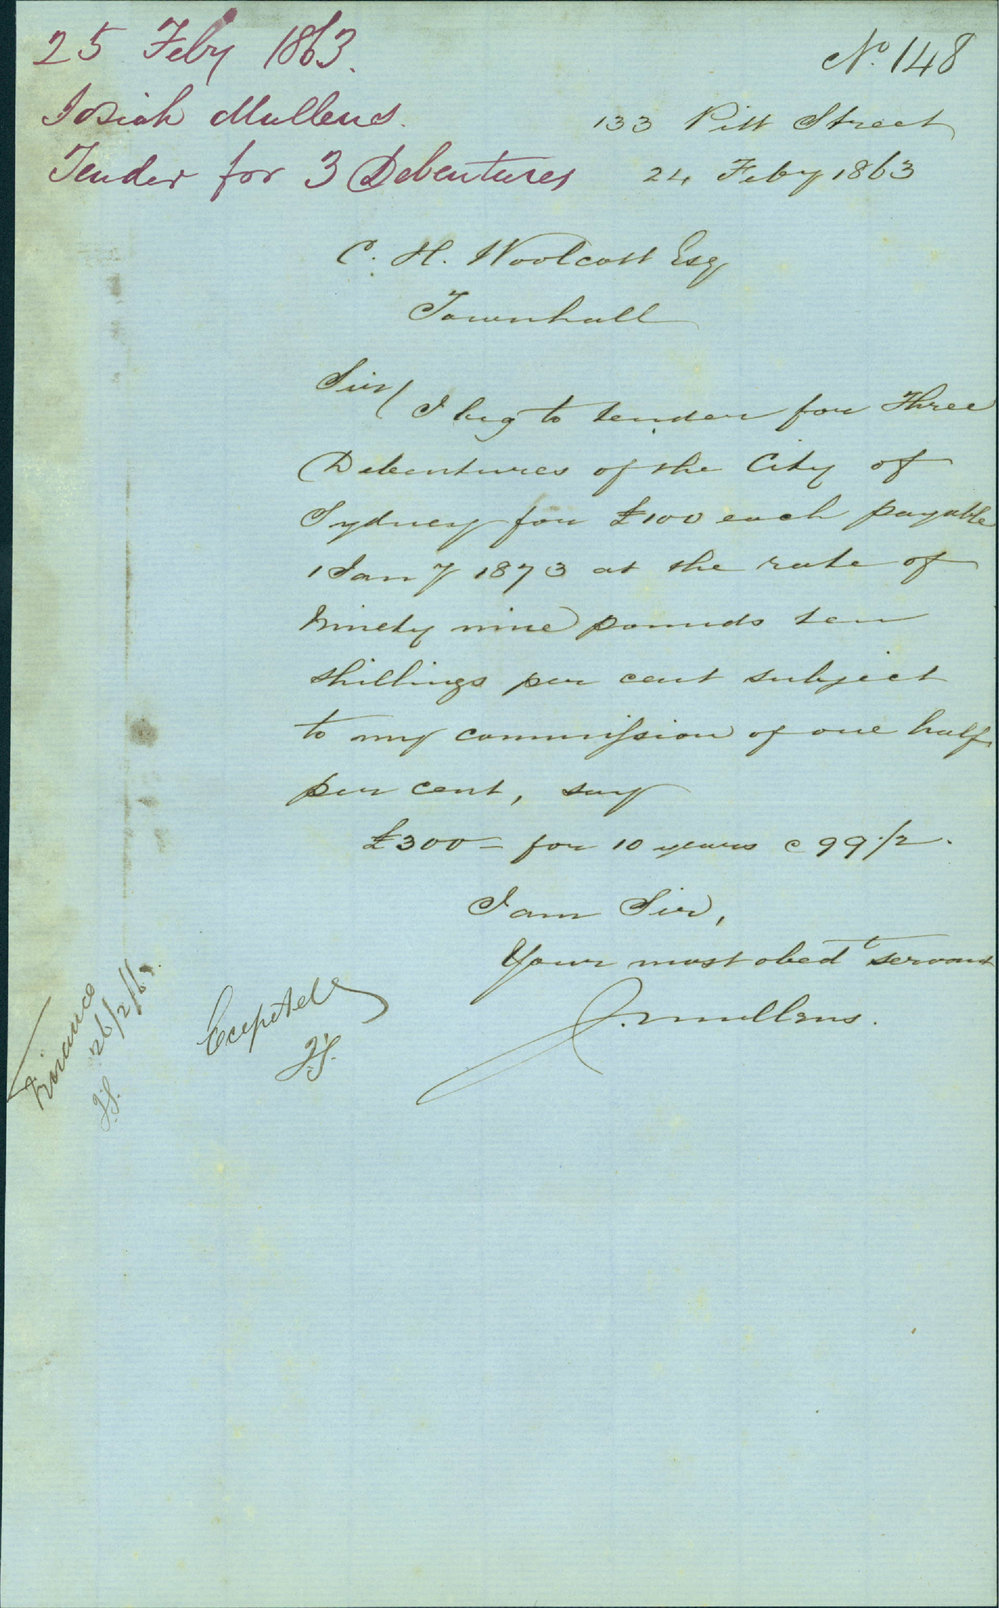 25 Feby 1863.
Josiah Mullens.
Tender for 3 Debentures
No. 148
133 Pitt Street
24 Feby 1863
C. H. Woolcott Esq
Townhall
Sir/ I beg to tender for Three
Debentures of the City of
Sydney for £100 each payable
1 Jany 1873 at the rate of
Ninety nine pounds ten
shillings per cent subject
to my commission of one half
per cent, say
£300 = for 10 years @ 99.1/2.
I am Sir,
Your most obedt servant
J. Mullens.
Finance
26/2/63.
J.S.
J.S.